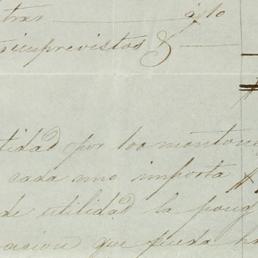 otras
imprevistos &
tidad por los montones
cada uno importa $
de utilidad la pong
acion que pueda ha